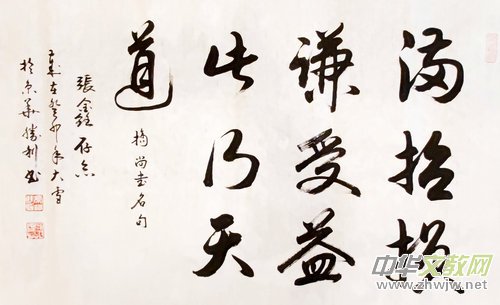 滿招損
謙受益
此乃天
道
摘尚书名句
張鑫存念
歲在癸卯年大雪
於京華勝利书
中华文教网
www.zhwjw.net